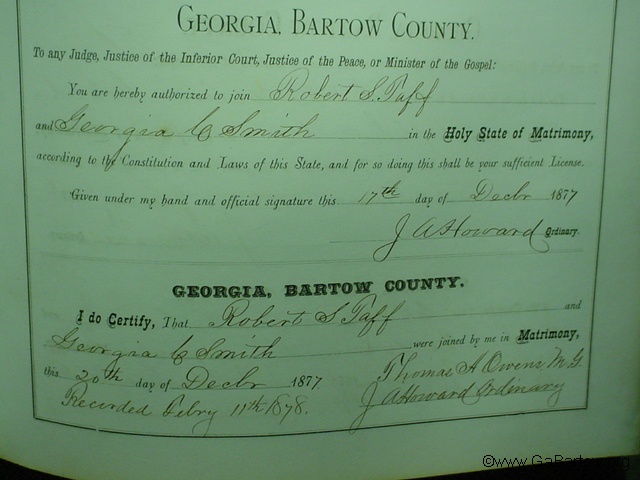 GEORGIA, BARTOW COUNTY.
To any Judge, Justice of the Inferior Court, Justice of the Peace, or Minister of the Gospel:
You are hereby authorized to join Robert S. Taff
and Georgia C Smith in the Holy State of Matrimony,
according to the Constitution and Laws of this State, and for so doing this shall be your sufficient License.
Given under my hand and official signature this 17th day of Decbr 1877
J A Howard Ordinary.
GEORGIA, BARTOW COUNTY.
I do Certify, That Robert S Taff and
Georgia C Smith were joined by me in Matrimony,
this 20th day of Decbr 1877. Thomas A Owens M.G.
Recorded Febry 11th 1878. J A Howard Ordinary
©www.GaBarto